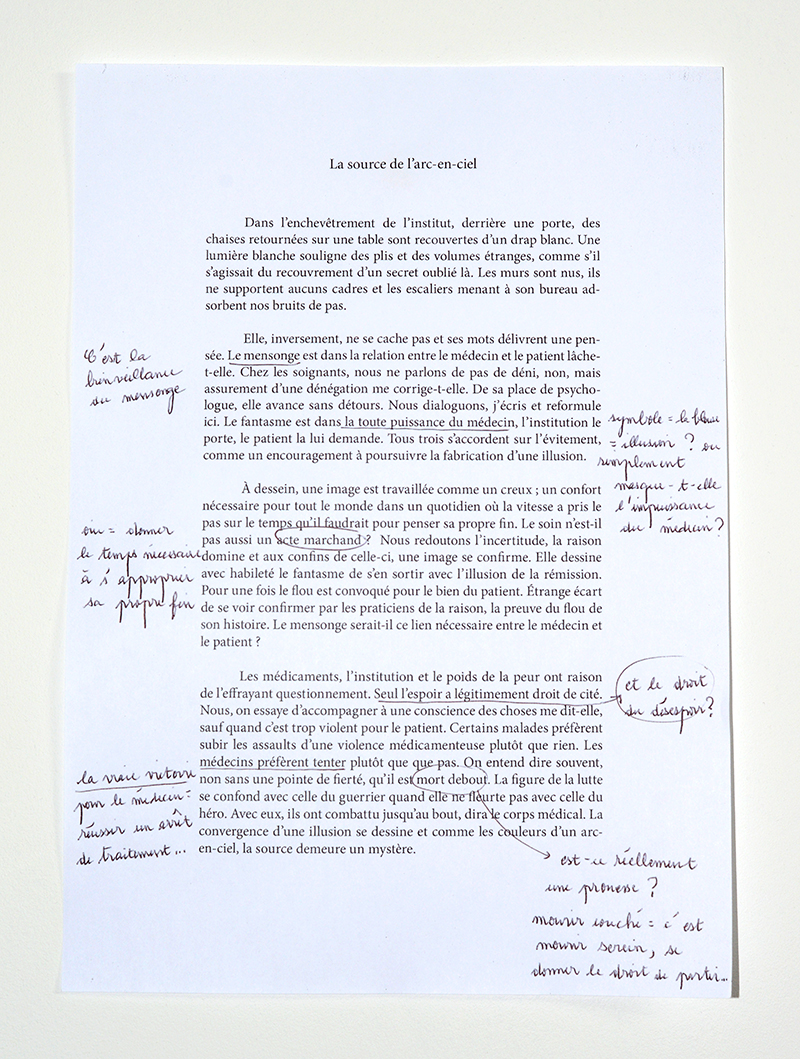 La source de l'arc-en-ciel
Dans l'enchevêtrement de l'institut, derrière une porte, des
chaises retournées sur une table sont recouvertes d'un drap blanc. Une
lumière blanche souligne des plis et des volumes étranges, comme s'il
s'agissait du recouvrement d'un secret oublié là. Les murs sont nus, ils
ne supportent aucuns cadres et les escaliers menant à son bureau ad-
sorbent nos bruits de pas.
Elle, inversement, ne se cache pas et ses mots délivrent une pen-
sée. Le mensonge est dans la relation entre le médecin et le patient lâche-
t-elle. Chez les soignants, nous ne parlons de pas de déni, non, mais
assurement d'une dénégation me corrige-t-elle. De sa place de psycho-
logue, elle avance sans détours. Nous dialoguons, j'écris et reformule
ici. Le fantasme est dans la toute puissance du médecin, l'institution le
porte, le patient la lui demande. Tous trois s'accordent sur l'évitement,
comme un encouragement à poursuivre la fabrication d'une illusion.
C'est la
bienveillance
du mensonge
symbole = la blouse
= illusion ? ou
simplement
masque-t-elle
l'impuissance
du médecin ?
À dessein, une image est travaillée comme un creux ; un confort
nécessaire pour tout le monde dans un quotidien où la vitesse a pris le
pas sur le temps qu'il faudrait pour penser sa propre fin. Le soin n'est-il
pas aussi un acte marchand ? Nous redoutons l'incertitude, la raison
domine et aux confins de celle-ci, une image se confirme. Elle dessine
avec habileté le fantasme de s'en sortir avec l'illusion de la rémission.
Pour une fois le flou est convoqué pour le bien du patient. Étrange écart
de se voir confirmer par les praticiens de la raison, la preuve du flou de
son histoire. Le mensonge serait-il ce lien nécessaire entre le médecin et
le patient ?
oui = donner
le temps nécessaire
à s'approprier
sa propre fin
Les médicaments, l'institution et le poids de la peur ont raison
de l'effrayant questionnement. Seul l'espoir a légitimement droit de cité.
Nous, on essaye d'accompagner à une conscience des choses me dit-elle,
sauf quand c'est trop violent pour le patient. Certains malades préfèrent
subir les assauts d'une violence médicamenteuse plutôt que rien. Les
médecins préfèrent tenter plutôt que que pas. On entend dire souvent,
non sans une pointe de fierté, qu'il est mort debout. La figure de la lutte
se confond avec celle du guerrier quand elle ne fleurte pas avec celle du
héro. Avec eux, ils ont combattu jusqu'au bout, dira le corps médical. La
convergence d'une illusion se dessine et comme les couleurs d'un arc-
en-ciel, la source demeure un mystère.
et le droit
du désespoir ?
la vraie victoire
pour le médecin =
réussir un arrêt
de traitement...
est-ce réellement
une prouesse ?
mourir couché = c'est
mourir serein, se
donner le droit de partir...